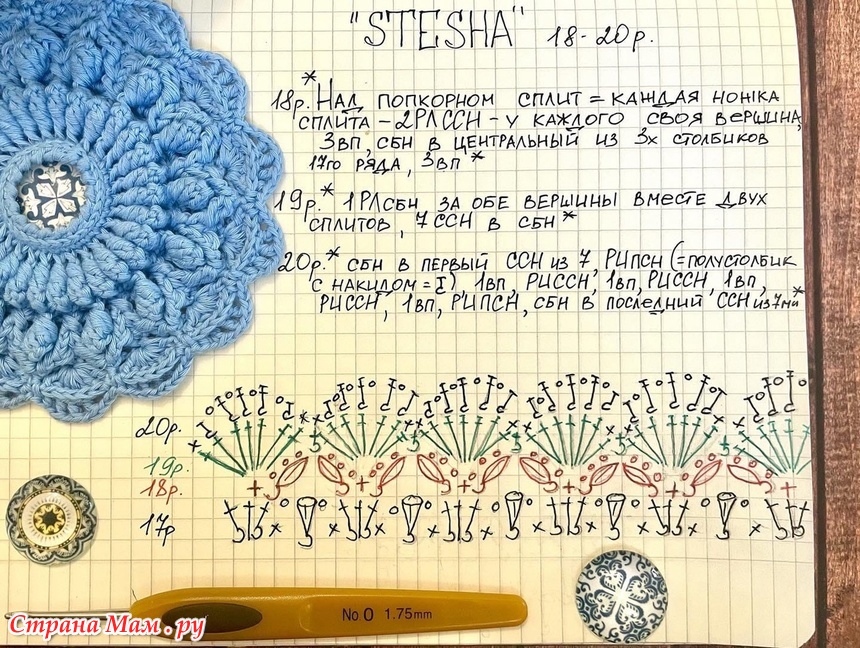 "STESHA" 18-20р.
*
18р. Над попкорном сплит = каждая ножка
сплита - 2РЛССН - у каждого своя вершина,
3вп, сбн в центральный из 3х столбиков
17го ряда, 3вп *
19р.* 1РЛсбн за обе вершины вместе двух
сплитов, 7ССН в сбн *
20р.* сбн в первый ССН из 7, РИПСН (=полустолбик
с накидом = I) 1вп, РИССН, 1вп, РИССН, 1вп,
РИССН, 1вп, РИПСН, сбн в последний ССН из 7ми *
20р.
19р.
18р.
17р
No 0 1.75mm
Страна Мам.ру